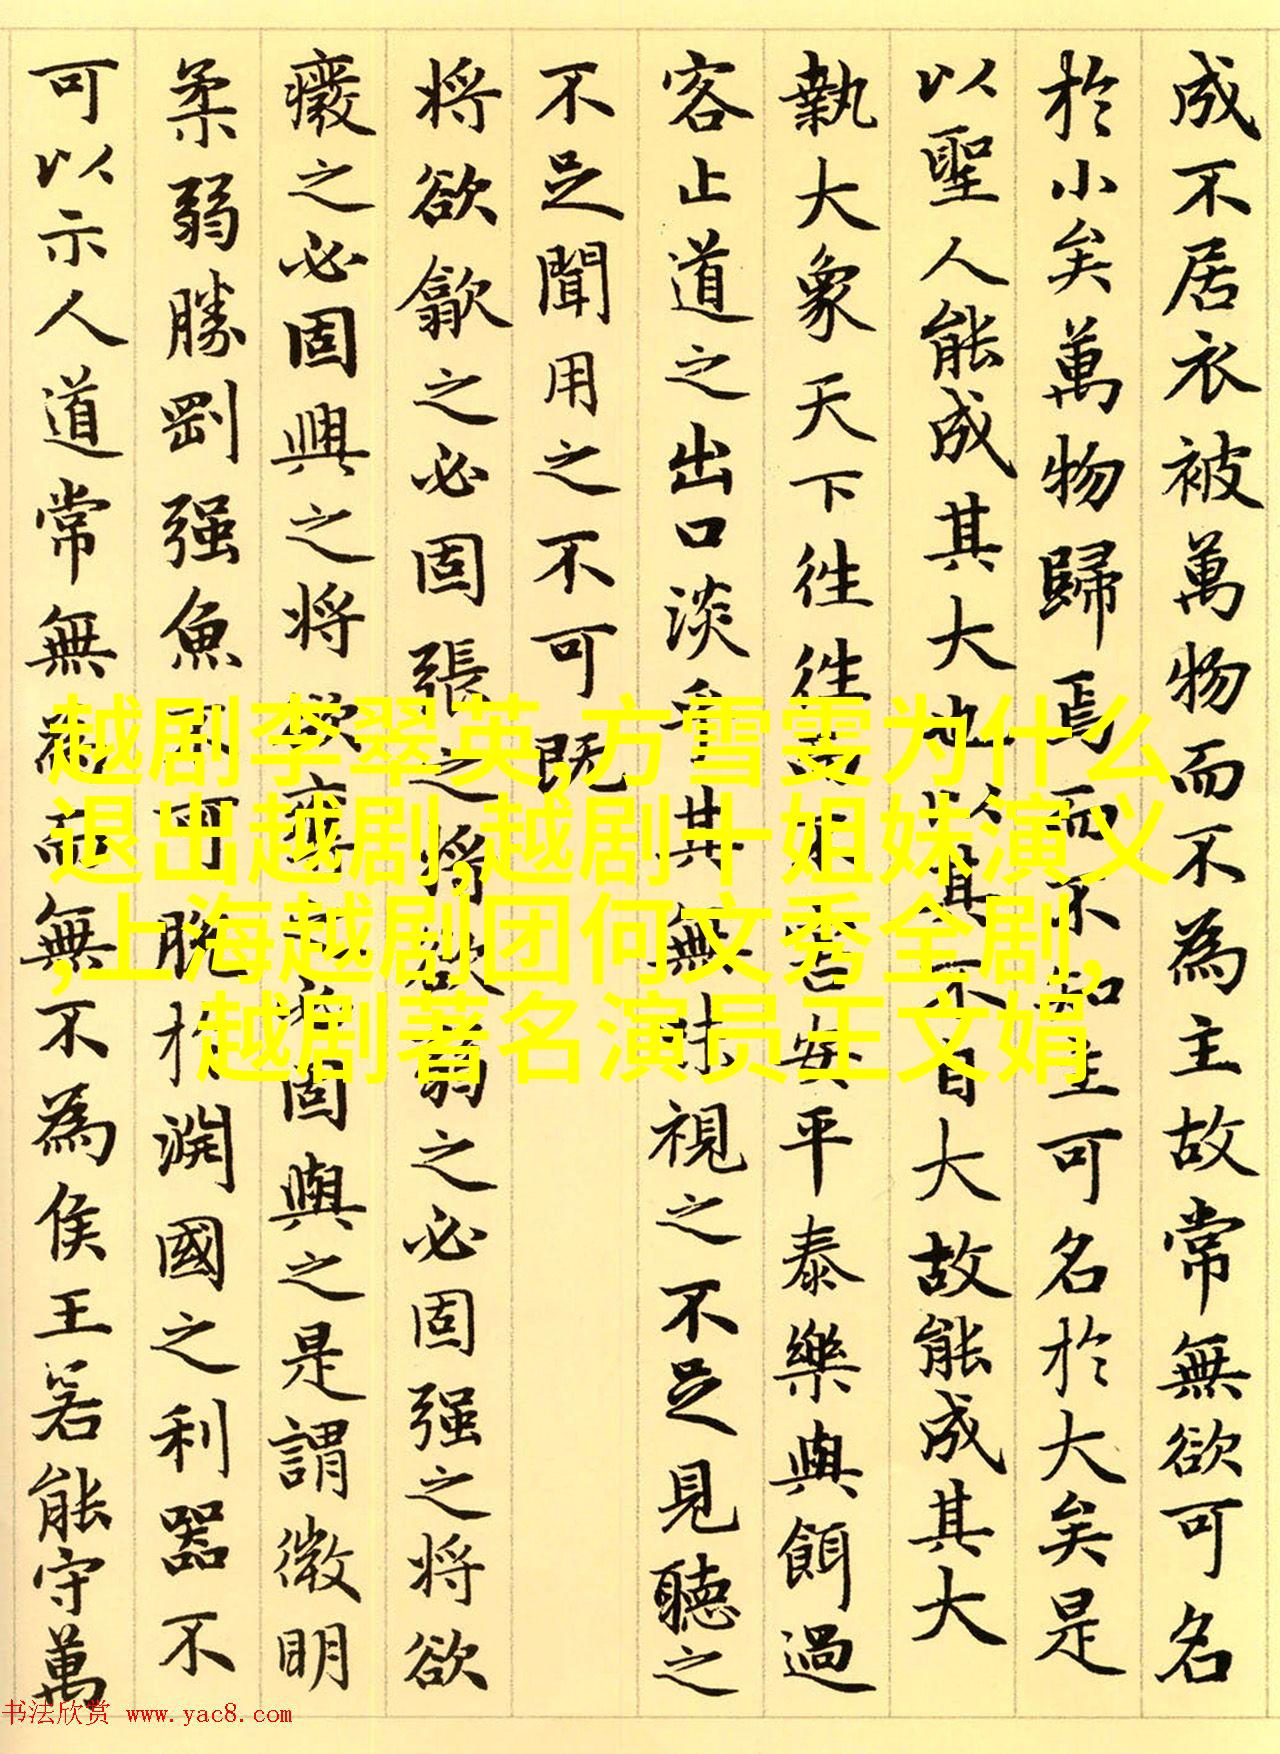 成不居衣被萬物而不為主故常無欲可名
於小矣萬物歸焉而不知主可名於大矣是
以聖人能成其大也以其不自大故能成其大
執大象天下往往而不害安平泰樂與餌過
客止道之出口淡乎其無味視之不足見聽之
不足聞用之不可既
將欲歙之必固張之將欲弱之必固强之將欲
癈之必固興之將欲奪之必固與之是謂微明
柔弱勝剛强魚不可脫於淵國之利器不
可以示人道常無為而無不為侯王若能守萬
越剧李翠英,方雪雯为什么
退出越剧,越剧十姐妹演义
,上海越剧团何文秀全剧,
越剧著名演员王文娟
书法欣赏 www.yac8.com